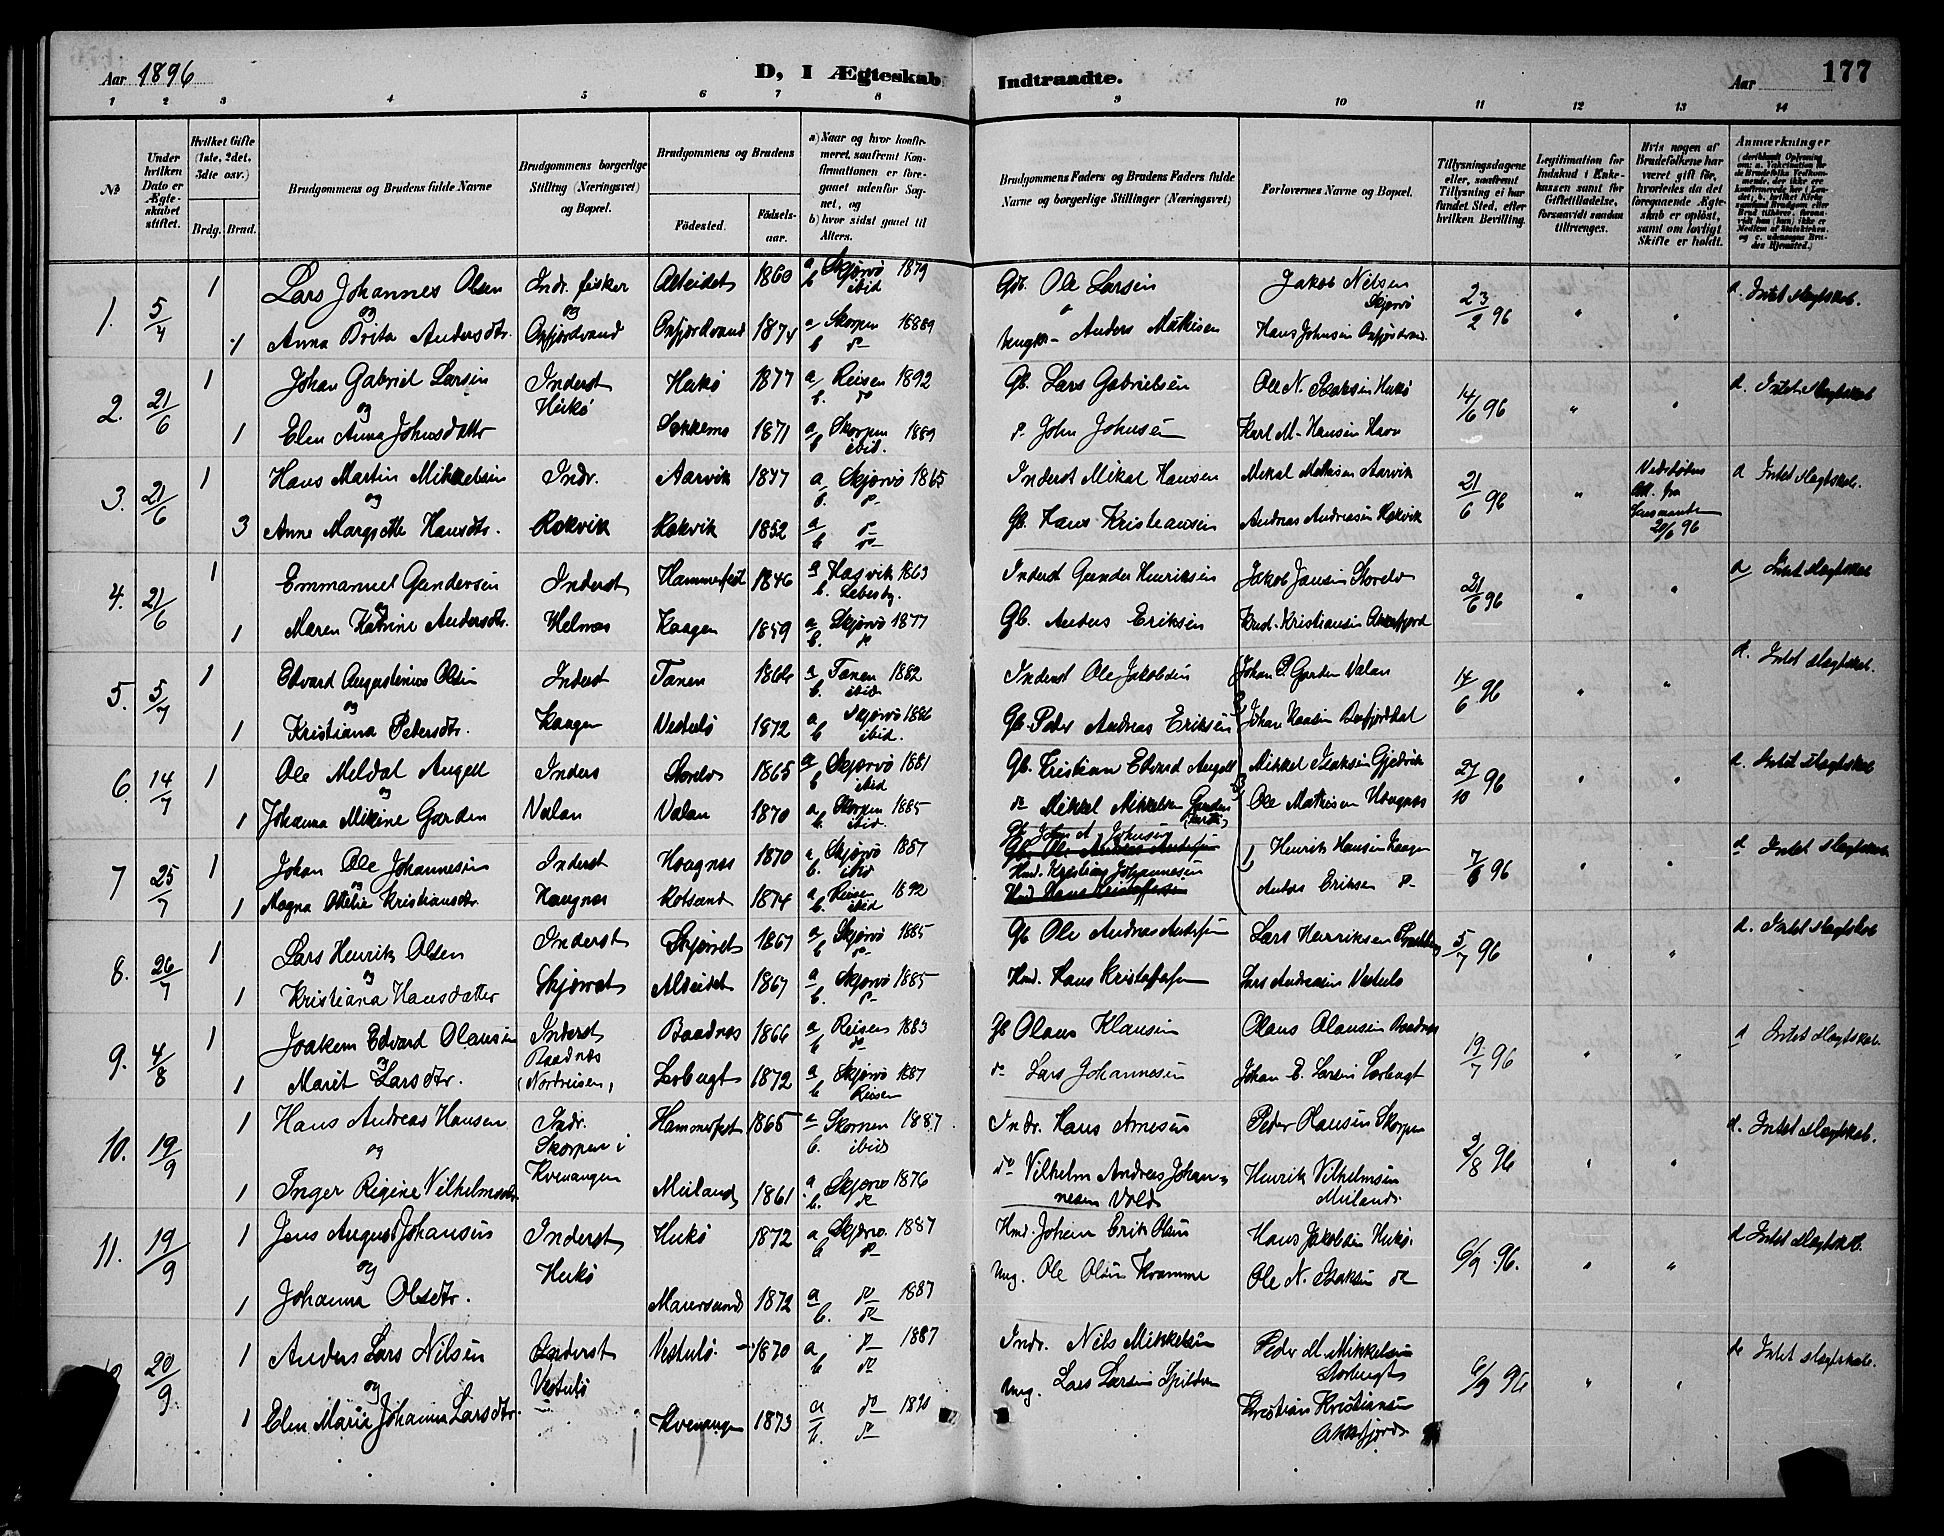 Aar 1896
D, I Ægteskab Indtraadte.
Aar
177
1 2 3 4 5 6 7 8 9 10 11 12 13 14
No
Under hvilken Dato er Ægteskabet stiftet.
Hvilket Gifte (1ste, 2det, 3die osv.)
Brdg. Brud.
Brudgommens og Brudens fulde Navne
Brudgommens borgerlige Stilling (Næringsvei) og Bopæl.
Brudgommens og Brudens
Fødested.
Fødselsaar.
a) Naar og hvor konfirmeret, saafremt Konfirmationen er foregaaet udenfor Sognet, og
b) hvor sidst gaaet til Alters.
Brudgommens Faders og Brudens Faders fulde Navne og borgerlige Stillinger (Næringsvei)
Forlovernes Navne og Bopæl.
Tillysningsdagene eller, saafremt Tillysning ei har fundet Sted, efter hvilken Bevilling.
Legitimation for Indskud i Enkekassen samt for Giftetilladelse, forsaavidt saadan tiltrænges.
Hvis nogen af Brudefolkene har været gift før, hvorledes da det foregaaende Ægteskab er opløst, samt om lovligt Skifte er holdt.
Anmærkninger
1. 5/4 1 Lars Johannes Olsen Indr. fisker Alteidet 1860 a Skjervö 1879 Gdb. Ole Larsen Jakob Nilsen Skjervö 23/2 96 " " d. Intet Slægtskab.
og b ibid
1 Anna Brita Andersdtr. Oxfjordvand Oxfjordvand 1874 a Skorpen 1889 Ungkr- Anders Mathisen Hans Johnsen Oxfjordvand.
b do
2. 21/6 1 Johan Gabriel Larsen Inderst Hukö Hukö 1877 a Reisen 1892 Gb. Lars Gabrielsen Ole N. Isaksen Hukö 14/6 96 " " d. Intet Slægtskab
og b. do
1 Elen Anna Johnsdatter Sekkemo 1871 a Skorpen 1889 do John Johnsen Karl M. Hansen Havn
b ibid.
3. 21/6 1 Hans Martin Mikkelsen Indr. Aarvik 1847 a Skjervö 1865 Inderst Mikal Hansen Mikal Mathisen Aarvik 21/6 96 " d Intet Slægtskab.
og b. do
3 Anne Margrethe Hansdtr. Rokvik Rokvik 1852 a do Gb. Hans Kristiansen Andreas Andreasen Rokvik
b do
Att. fra Lensmanden 20/6 96
4. 21/6 1 Emmanuel Gundersen Inderst Hammerfest 1846 a Hasvik 1863 Inderst Gunder Henriksen Jakob Jansen Storelv 21/6 96 " " d Intet Slægtskab
og b. Lebesby.
1 Maren Katrine Andersdtr. Helnes Kaagen 1859 a Skjervö 1877 Gb. Anders Eriksen Knud Kristiansen Akkefjord
b. do
5. 5/7 1 Edvard Augustinius Olsen Inderst Tanen 1864 a Tanen 1882 Inderst Ole Jakobsen Johan P. Garden Valan 14/6 96 " " d. Intet Slægtskab.
og b. ibid
1 Kristiana Petersdtr. Kaagen Vesterlö 1872 a Skjervö 1886 Gb. Peder Andreas Eriksen
b ibid.
6. 14/7 1 Ole Meldal Angell Inders Storelv 1865 a Skjervö 1881 Gb. Kristian Edvard Angell Mikkel Isaksen Gjedvik 27/10 96 " " d. Intet Slægtskab
og b ibid
1 Johanna Mikine Garden Valan Valan 1870 a Skorpen 1885 do Mikkel Mikkelsen Garden Ole Mathisen Hougnæs
b. ibid.
7 25/7 1 Johan Ole Johannesen Inderst Hougnæs 1870 a Skjervö 1887 Gb John A. Johnsen Henrik Hansen Kaagen 7/6 96 " " d Intet Slægtskab
og b. ibid
1 Magna Ottelie Kristiansdtr. Hougnæs Rotsund 1874 a Reisen 1892 Hmd. Kristian Johannesen Anders Eriksen do
b. ibid
8. 26/7 1 Lars Henrik Olsen Inderst Skjervet 1867 a Skjervö 1885 Gb Ole Andreas Andersen Lars Henriksen 5/7 96 " " d. Intet Slægtskab
og b do
1 Kristiana Hansdatter Skjervet Alteidet 1867 a Skjervö 1885 Hmd. Hans Kristoffersen Lars Andreasen Vesterlö
b. do
9. 4/8 1 Joakem Edvard Olausen Inderst Baadnæs 1866 a Reisen 1883 Gb Olaus Klausen Olaus Olausen Baadnæs 19/7 96 " " d Intet Slægtskab.
og Baadnæs b do
1 Marit Larsdtr. (Nordreisen) Lerbugt 1872 a Skjervö 1887 do Lars Johannesen Johan E. Larsen Lerbugt
b Reisen
10. 19/9 1 Hans Andreas Hansen Indr. Hammerfest 1865 a Skorpen 1887. Indr. Hans Arnesen Peder Olausen Skorpen 2/8 96 " " d. Intet Slægtskab.
og Skorpen i Kvenangen b. ibid
1 Inger Regine Vilhelmsdtr. Meiland 1861 a Skjervö 1876 do Vilhelm Andreas Johannesen Vold Henrik Vilhelmsen Meiland
b. do
11. 19/9 1 Jens August Johansen Inderst Hukö 1872 a Skjervö. 1887 Hmd. Johan Erik Olsen Hans Jakobsen Hukö. 6/9 96. " " d Intet Slægtskab.
og Hukö b do
1 Johanna Olsdtr. Maursund 1872 a do 1887 Ung. Ole Olsen Kramme Ole N. Isaksen do
b. do
20/9 1 Anders Lars Nilsen Inderst Vesterlö 1870 a do 1887 Indr. Nils Mikkelsen Peder M. Mikkelsen Storbugt 6/9 96 " " d. Intet Slægtskab.
og Vesterlö b do
1 Elen Maria Johanna Larsdtr. Kvenangen 1873 a do 1890 Ung. Lars Larsen Spildern Kristian Kristiansen Akkefjord
b. do